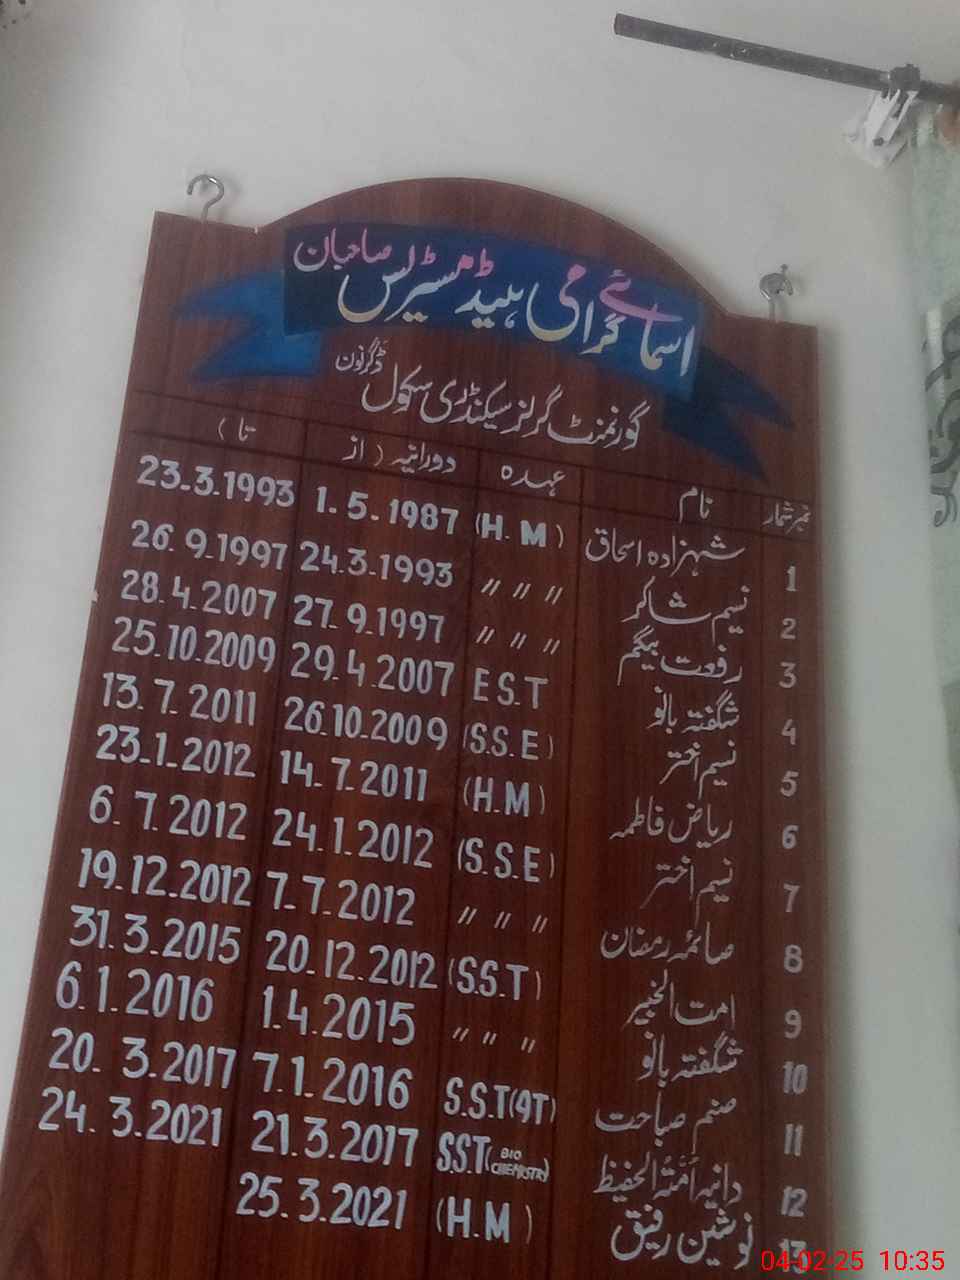 اسمائے گرامی ہیڈ مسٹریس صاحبان
گورنمنٹ گرلز سیکنڈری سکول ڈگرنون
نمبر شمار نام عہدہ دورانیہ (از تا)
1 شہزادہ اسحاق (H.M) 1.5.1987 23.3.1993
2 نسیم شاکر " " " 24.3.1993 26.9.1997
3 رفعت بیگم " " " 27.9.1997 28.4.2007
4 شگفتہ بانو E S.T 29.4.2007 25.10.2009
5 نسیم اختر (S.S.E) 26.10.2009 13.7.2011
6 ریاض فاطمہ (H.M) 14.7.2011 23.1.2012
7 نسیم اختر (S.S.E) 24.1.2012 6.7.2012
8 صائمہ رمضان " " " 7.7.2012 19.12.2012
9 امت الخبیر (S.S.T) 20.12.2012 31.3.2015
10 شگفتہ بانو " " " 1.4.2015 6.1.2016
11 صنم صباحت S.S.T(9T) 7.1.2016 20.3.2017
12 دانیہ اَمَۃُ الحفیظ SST(BIO CHEMISTRY) 21.3.2017 24.3.2021
13 نوشین رفیق (H.M) 25.3.2021
04-02-25 10:35